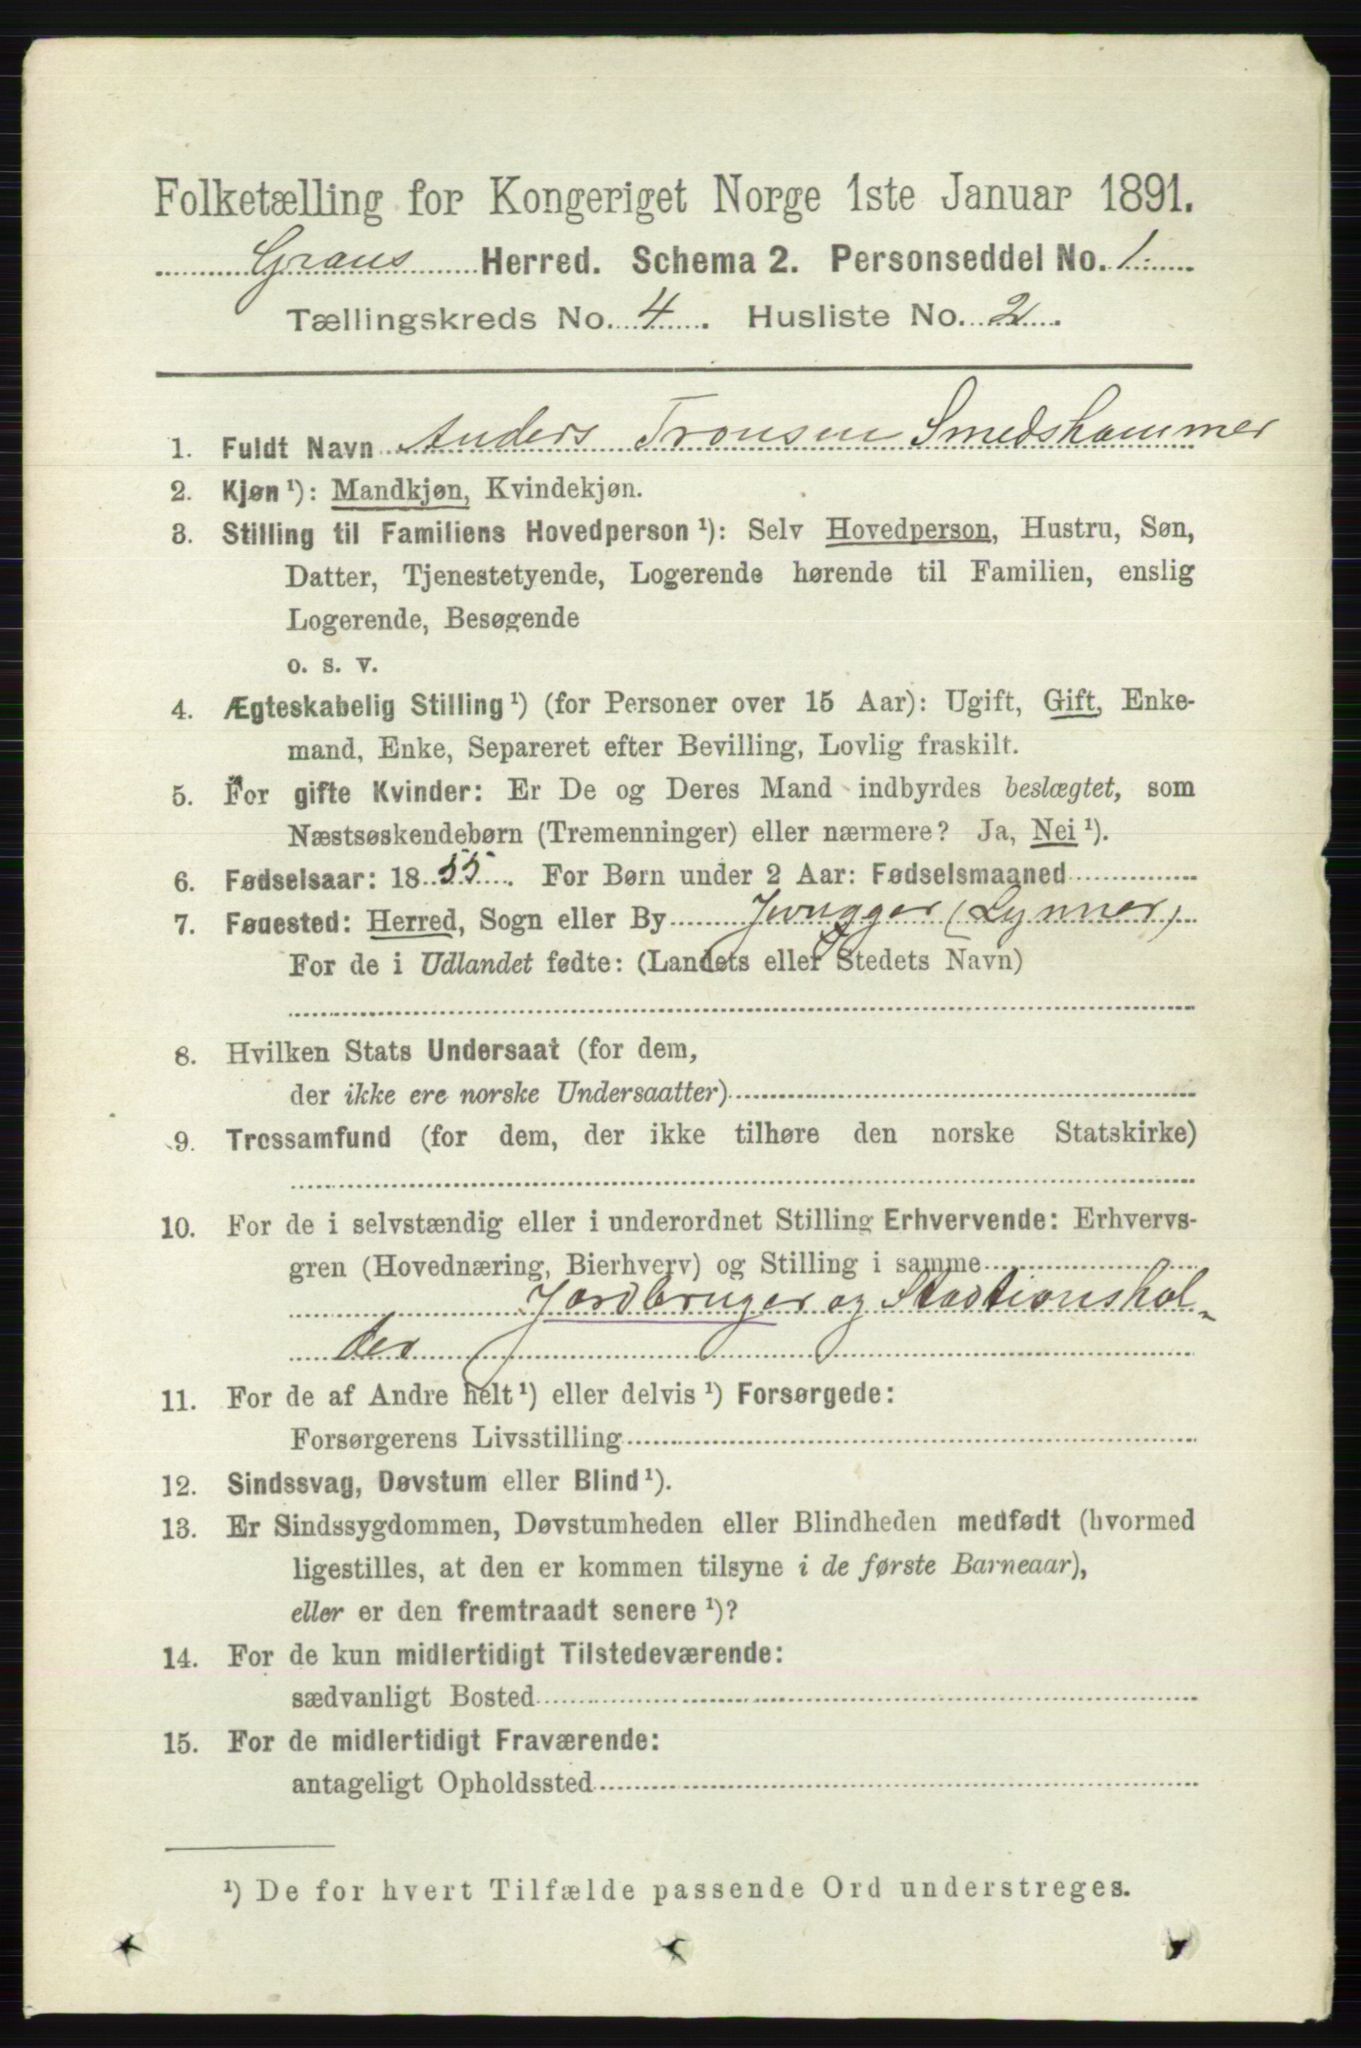 Folketælling for Kongeriget Norge 1ste Januar 1891.
Grans Herred. Schema 2. Personseddel No. 1.
Tællingskreds No. 4. Husliste No. 2.
1. Fuldt Navn Anders Tronsen Smedshammer
2. Kjøn ¹): Mandkjøn, Kvindekjøn.
3. Stilling til Familiens Hovedperson ¹): Selv Hovedperson, Hustru, Søn,
Datter, Tjenestetyende, Logerende hørende til Familien, enslig
Logerende, Besøgende
o. s. v.
4. Ægteskabelig Stilling ¹) (for Personer over 15 Aar): Ugift, Gift, Enke-
mand, Enke, Separeret efter Bevilling, Lovlig fraskilt.
5. For gifte Kvinder: Er De og Deres Mand indbyrdes beslægtet, som
Næstsøskendebørn (Tremenninger) eller nærmere? Ja, Nei ¹).
6. Fødselsaar: 1855. For Børn under 2 Aar: Fødselsmaaned
7. Fødested: Herred, Sogn eller By (Lynner)
For de i Udlandet fødte: (Landets eller Stedets Navn)
8. Hvilken Stats Undersaat (for dem,
der ikke ere norske Undersaatter)
9. Trossamfund (for dem, der ikke tilhøre den norske Statskirke)
10. For de i selvstændig eller i underordnet Stilling Erhvervende: Erhvervs-
gren (Hovednæring, Bierhverv) og Stilling i samme
Jordbruger og Stastionshol-
der
11. For de af Andre helt ¹) eller delvis ¹) Forsørgede:
Forsørgerens Livsstilling
12. Sindssvag, Døvstum eller Blind ¹).
13. Er Sindssygdommen, Døvstumheden eller Blindheden medfødt (hvormed
ligestilles, at den er kommen tilsyne i de første Barneaar),
eller er den fremtraadt senere ¹)?
14. For de kun midlertidigt Tilstedeværende:
sædvanligt Bosted
15. For de midlertidigt Fraværende:
antageligt Opholdssted
¹) De for hvert Tilfælde passende Ord understreges.